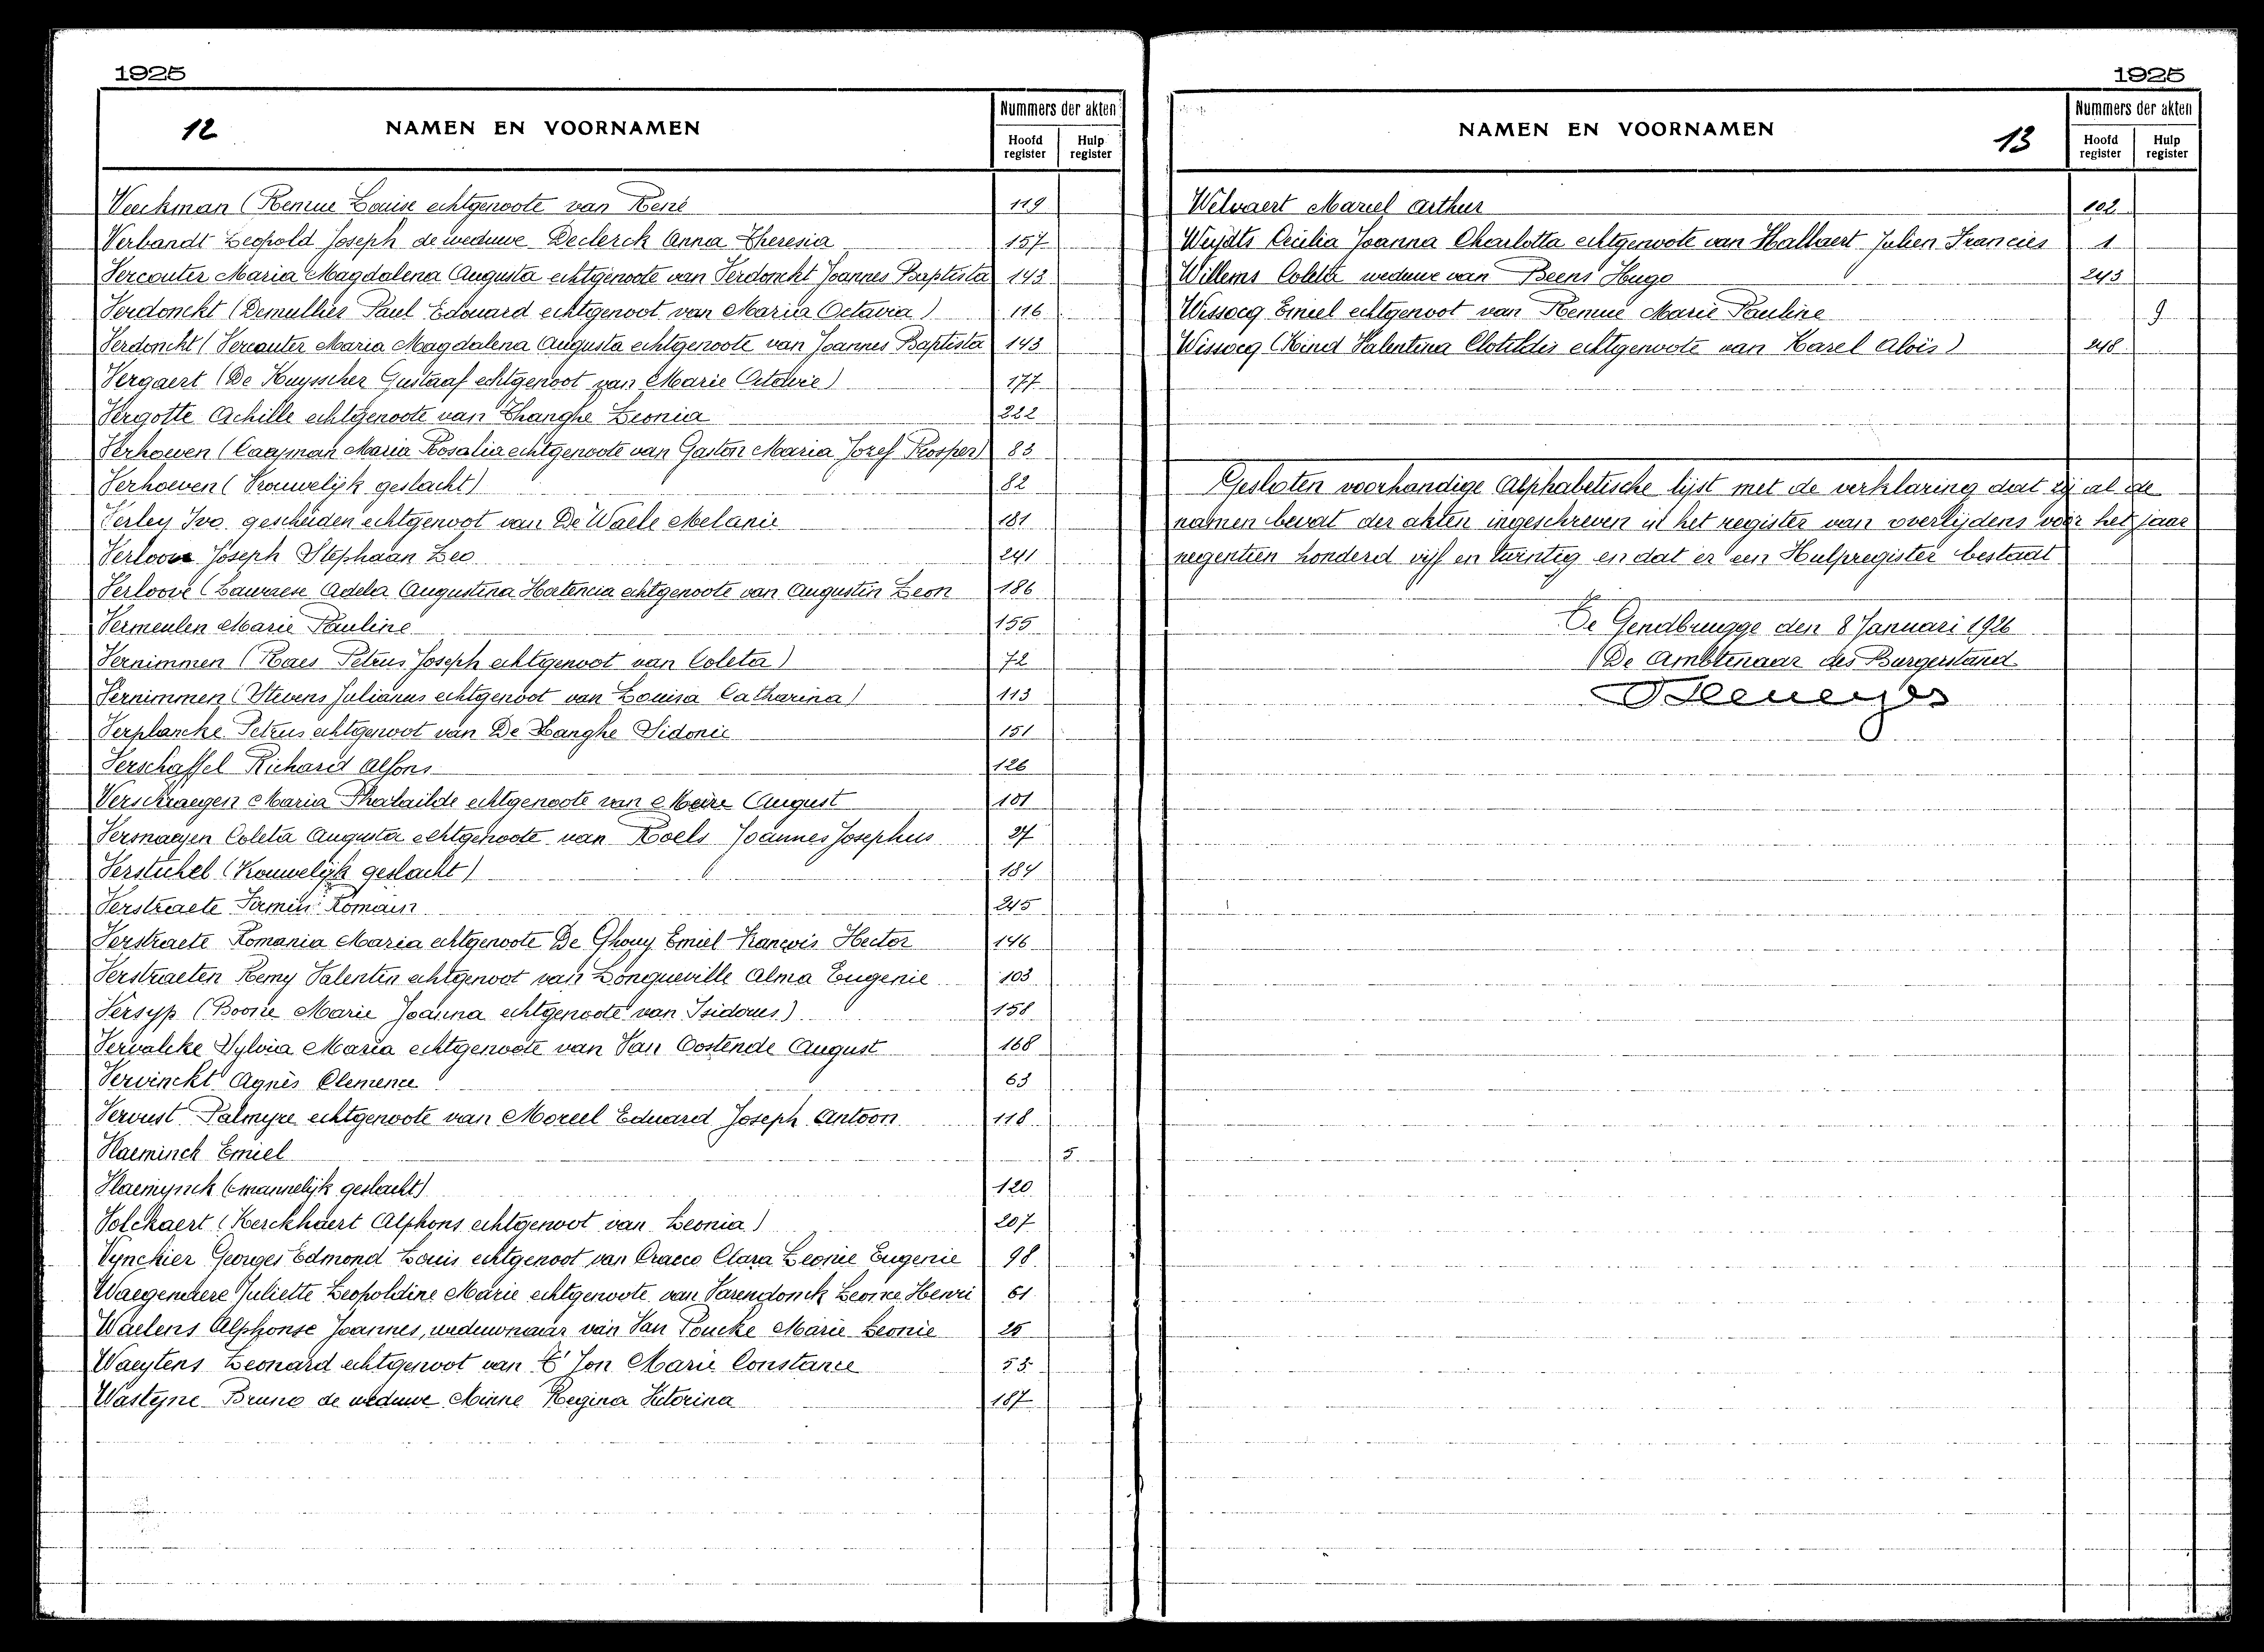 1925
12
NAMEN EN VOORNAMEN
Nummers der akten
Hoofd register
Hulp register
Veeckman (Remue Louise echtgenoote van René 119
Verbandt Leopold Joseph de weduwe Declerck Anna Theresia 157
Vercauter Maria Magdalena Augusta echtgenoote van Verdonckt Joannes Baptista 143
Verdonckt (Demulder Paul Edouard echtgenoot van Maria Octavia) 116
Verdonckt (Vercauter Maria Magdalena Augusta echtgenoote van Joannes Baptista 143
Vergaert (De Kuysscher Gustaaf echtgenoot van Marie Octavie) 177
Vergotte Achille echtgenoote van Thanghe Leonia 222
Verhoeven (Caapman Maria Rosalia echtgenoote van Gaston Maria Jozef Prosper) 83
Verhoeven (Vrouwelijk geslacht) 82
Verley Ivo gescheiden echtgenoot van De Waele Melanie 181
Verloove Joseph Stephaan Leo 241
Verloove (Adela Augustina Hortencia echtgenoote van Augustin Leon 186
Vermeulen Marie Pauline 155
Vernimmen (Raes Petrus Joseph echtgenoot van Coleta) 72
Vernimmen (Stevens Julianus echtgenoot van Louisa Catharina) 113
Verplancke Petrus echtgenoot van De Langhe Sidonie 151
Verschaffel Richard Alfons 126
Verschraegen Maria Pharaïlde echtgenoote van Meire August 101
Versnaeyen Coleta Augusta echtgenoote van Roels Joannes Josephus 27
Verstichel (Vrouwelijk geslacht) 184
Verstraete Firmin Romain 245
Verstraete Romania Maria echtgenoote De Ghouy Emiel François Hector 146
Verstraeten Remy Valentin echtgenoot van Longueville Alma Eugenie 103
Versyp (Boone Marie Joanna echtgenoote van Isidorus) 158
Vervalcke Sylvia Maria echtgenoote van Van Oostende August 168
Vervinckt Agnès Clemence 63
Vervust Palmyre echtgenoote van Moreel Eduard Joseph Antoon 118
Vlaeminck Emiel 5
Vlaemynck (mannelijk geslacht) 120
Volckaert (Kerckhaert Alphons echtgenoot van Leonia) 207
Vynckier Georges Edmond Louis echtgenoot van Cracco Clara Leonie Eugenie 98
Waegenaere Juliette Leopoldine Marie echtgenoote van Varendonck Leonce Henri 61
Waelens Alphonse Joannes, weduwnaar van Van Poucke Marie Leonie 26
Waeytens Leonard echtgenoot van T' Jon Marie Constance
Wasteyne Bruno de weduwe Minne Regina Victorina 187
1925
NAMEN EN VOORNAMEN
13
Nummers der akten
Hoofd register
Hulp register
Welvaert Marcel Arthur 102
Weydts Cecilia Joanna Charlotta echtgenoote van Hallaert Julien Francies 1
Willems Coleta weduwe van Beens Hugo 243
Wissocq Emiel echtgenoot van Remue Marie Pauline 9
Wissocq (Kind Valentina Clotildis echtgenoote van Karel Aloïs) 248
Gesloten voorhandige Alphabetische lijst met de verklaring dat zij al de
namen bevat der akten ingeschreven in het register van overlijdens voor het jaar
negentien honderd vijf en twintig en dat er een Hulpregister bestaat
Te Gendbrugge den 8 Januari 1926
De Ambtenaar des Burgerstand